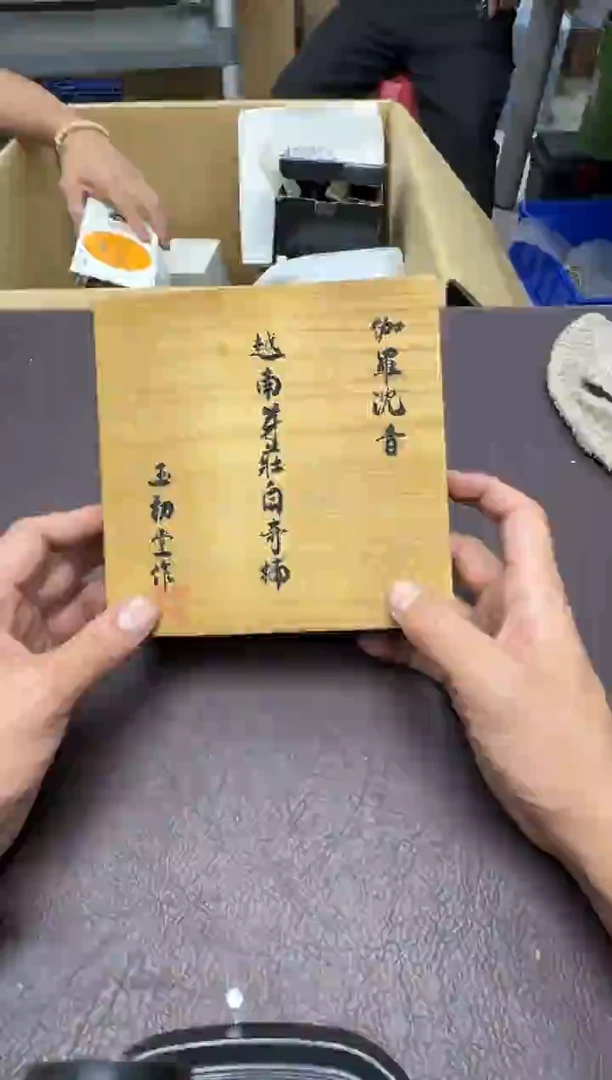 伽羅沈香
越南芽莊白奇楠
玉初堂作